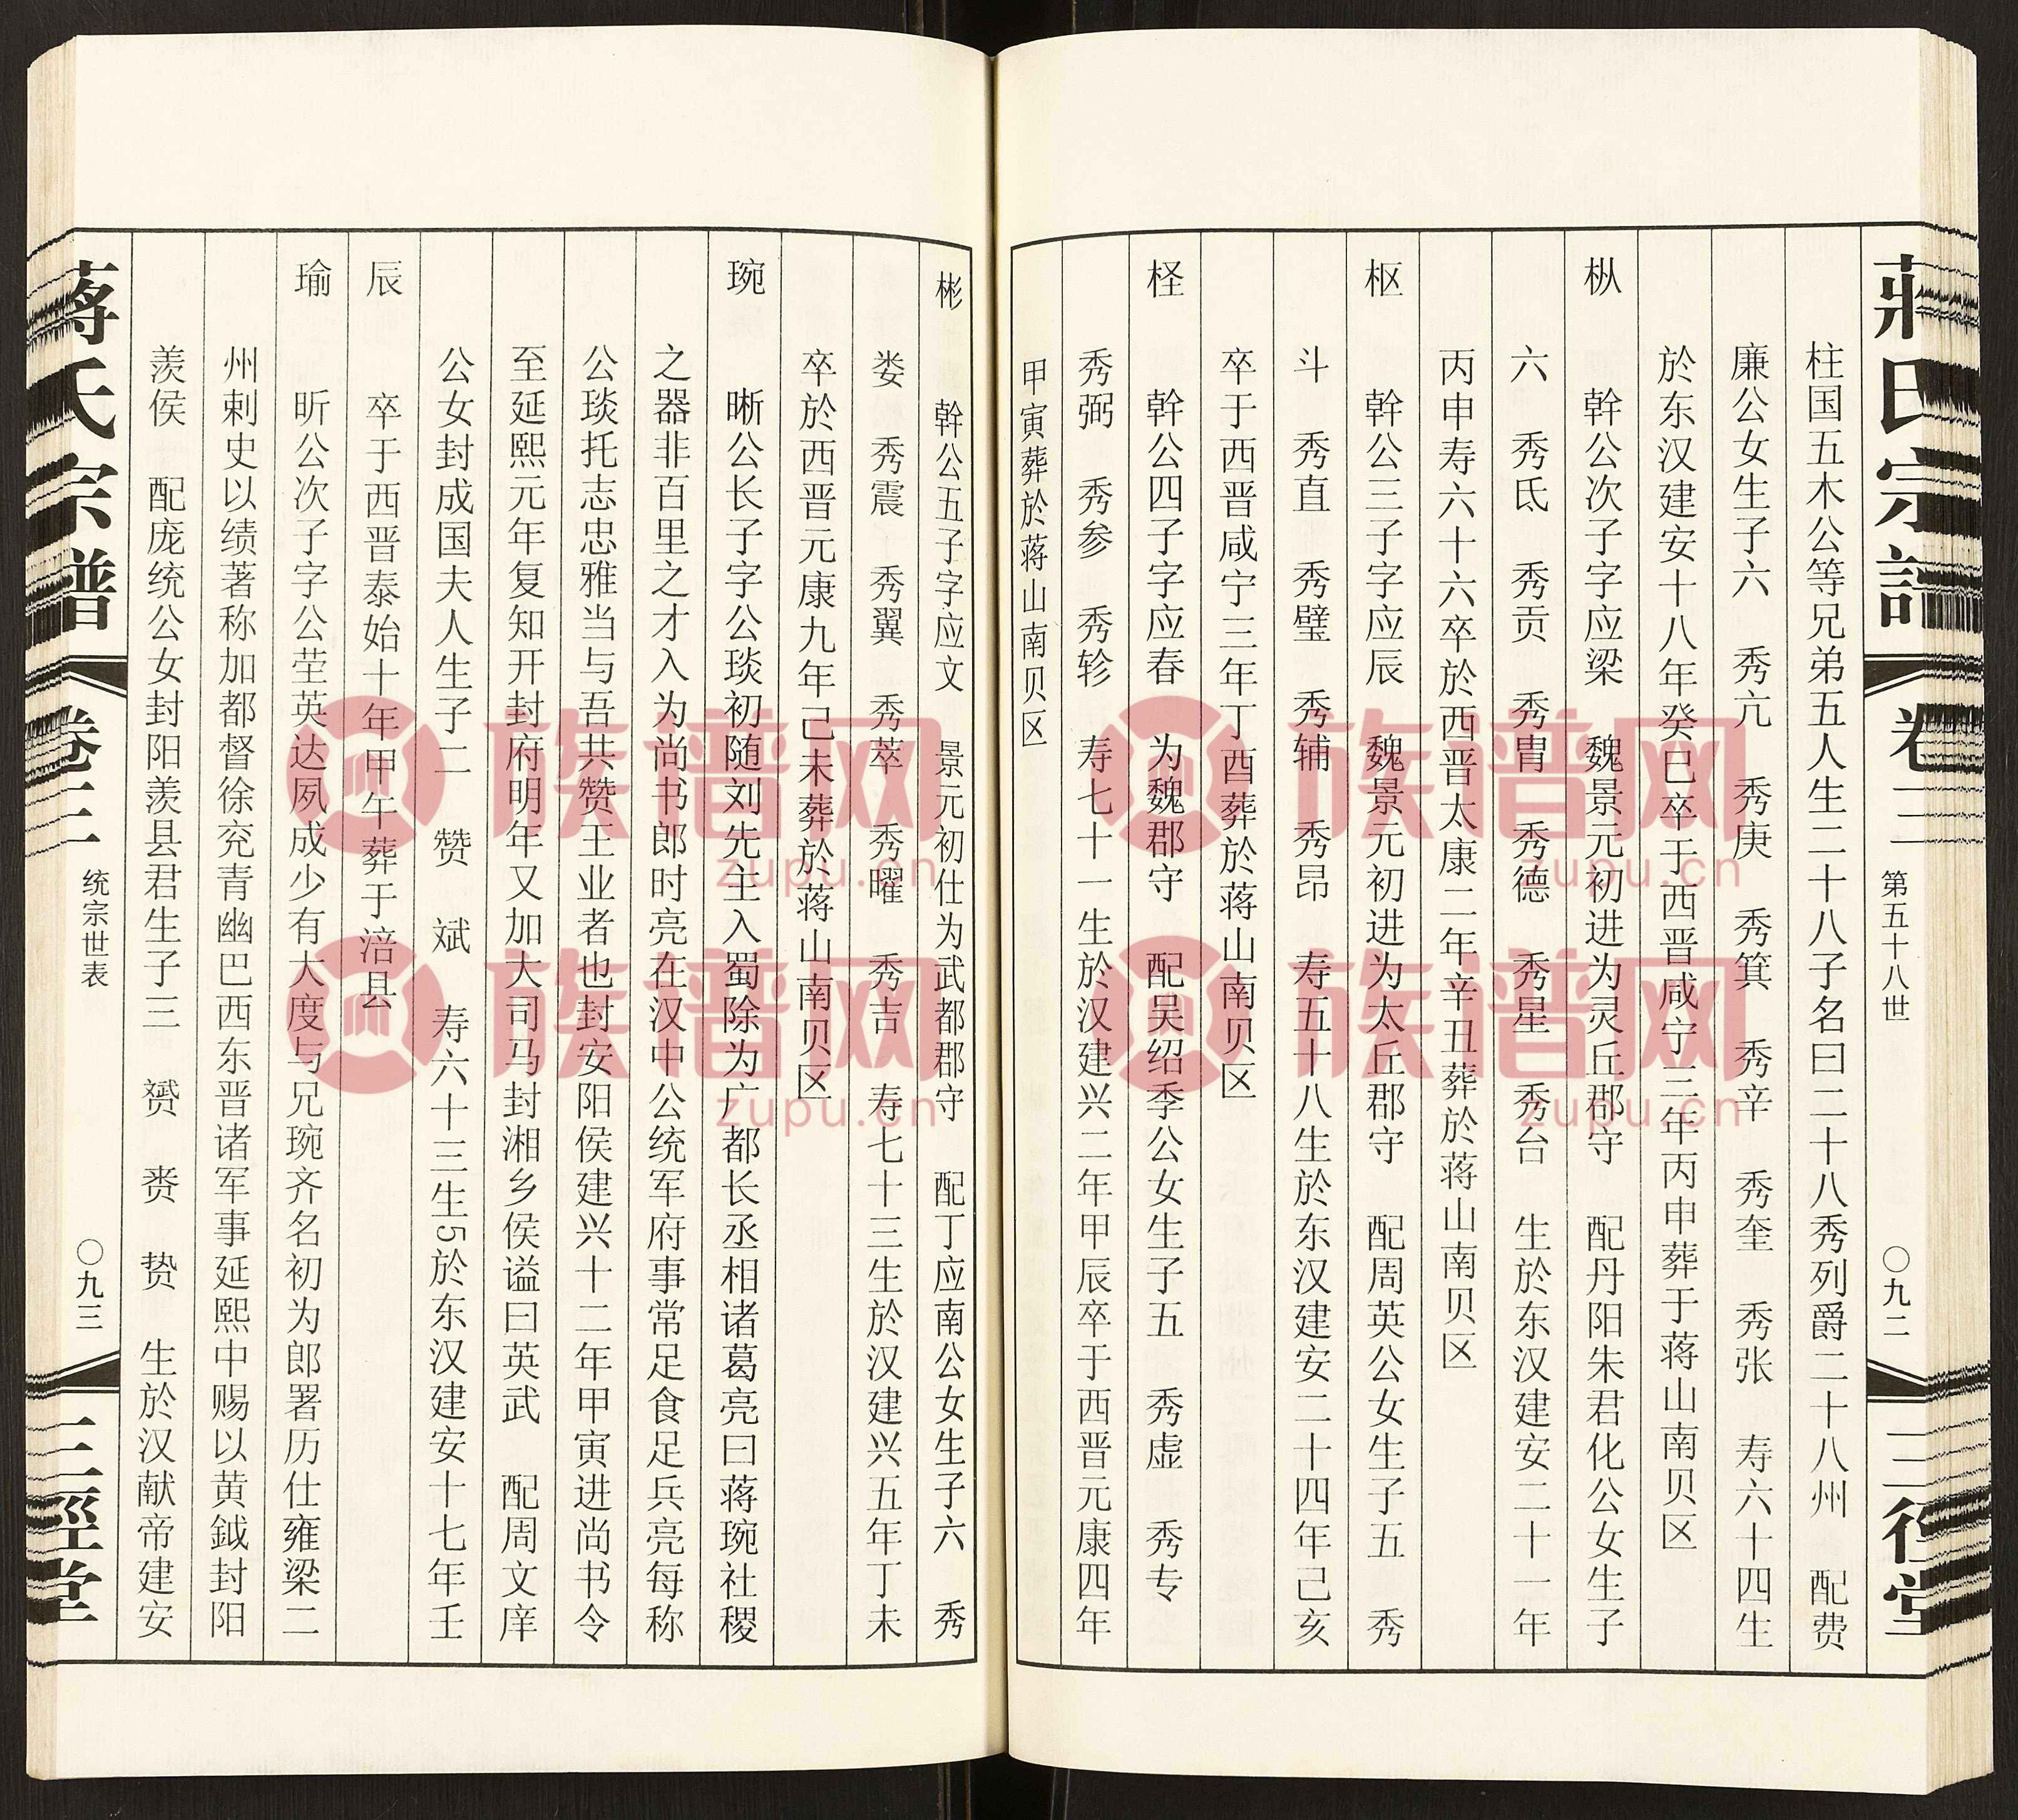 蔣氏宗譜
卷三
第五十八世
〇九二
三徑堂
柱国五木公等兄弟五人生二十八子名曰二十八秀列爵二十八州 配费
廉公女生子六 秀亢 秀庚 秀箕 秀辛 秀奎 秀张 寿六十四生
於东汉建安十八年癸巳卒于西晋咸宁三年丙申葬于蒋山南贝区
枞 幹公次子字应梁 魏景元初进为灵丘郡守 配丹阳朱君化公女生子
六 秀氐 秀贡 秀胃 秀德 秀星 秀台 生於东汉建安二十一年
丙申寿六十六卒於西晋太康二年辛丑葬於蒋山南贝区
枢 幹公三子字应辰 魏景元初进为太丘郡守 配周英公女生子五 秀
斗 秀直 秀璧 秀辅 秀昂 寿五十八生於东汉建安二十四年己亥
卒于西晋咸宁三年丁酉葬於蒋山南贝区
柽 幹公四子字应春 为魏郡守 配吴绍季公女生子五 秀虚 秀专
秀弼 秀参 秀轸 寿七十一生於汉建兴二年甲辰卒于西晋元康四年
甲寅葬於蒋山南贝区
彬 幹公五子字应文 景元初仕为武都郡守 配丁应南公女生子六 秀
娄 秀震 秀翼 秀萃 秀曜 秀吉 寿七十三生於汉建兴五年丁未
卒於西晋元康九年己未葬於蒋山南贝区
琬 晰公长子字公琰初随刘先主入蜀除为广都长丞相诸葛亮曰蒋琬社稷
之器非百里之才入为尚书郎时亮在汉中公统军府事常足食足兵亮每称
公琰托志忠雅当与吾共赞王业者也封安阳侯建兴十二年甲寅进尚书令
至延熙元年复知开封府明年又加大司马封湘乡侯谥曰英武 配周文庠
公女封成国夫人生子二 赞 斌 寿六十三生5於东汉建安十七年壬
辰 卒于西晋泰始十年甲午葬于涪县
瑜 昕公次子字公莹英达夙成少有大度与兄琬齐名初为郎署历仕雍梁二
州刺史以绩著称加都督徐兖青幽巴西东晋诸军事延熙中赐以黄鉞封阳
羡侯 配庞统公女封阳羡县君生子三 赟 赉 贽 生於汉献帝建安
蔣氏宗譜
卷三
统宗世表
〇九三
三徑堂
族谱网
zupu.cn
族谱网
zupu.cn
族谱网
zupu.cn
族谱网
zupu.cn